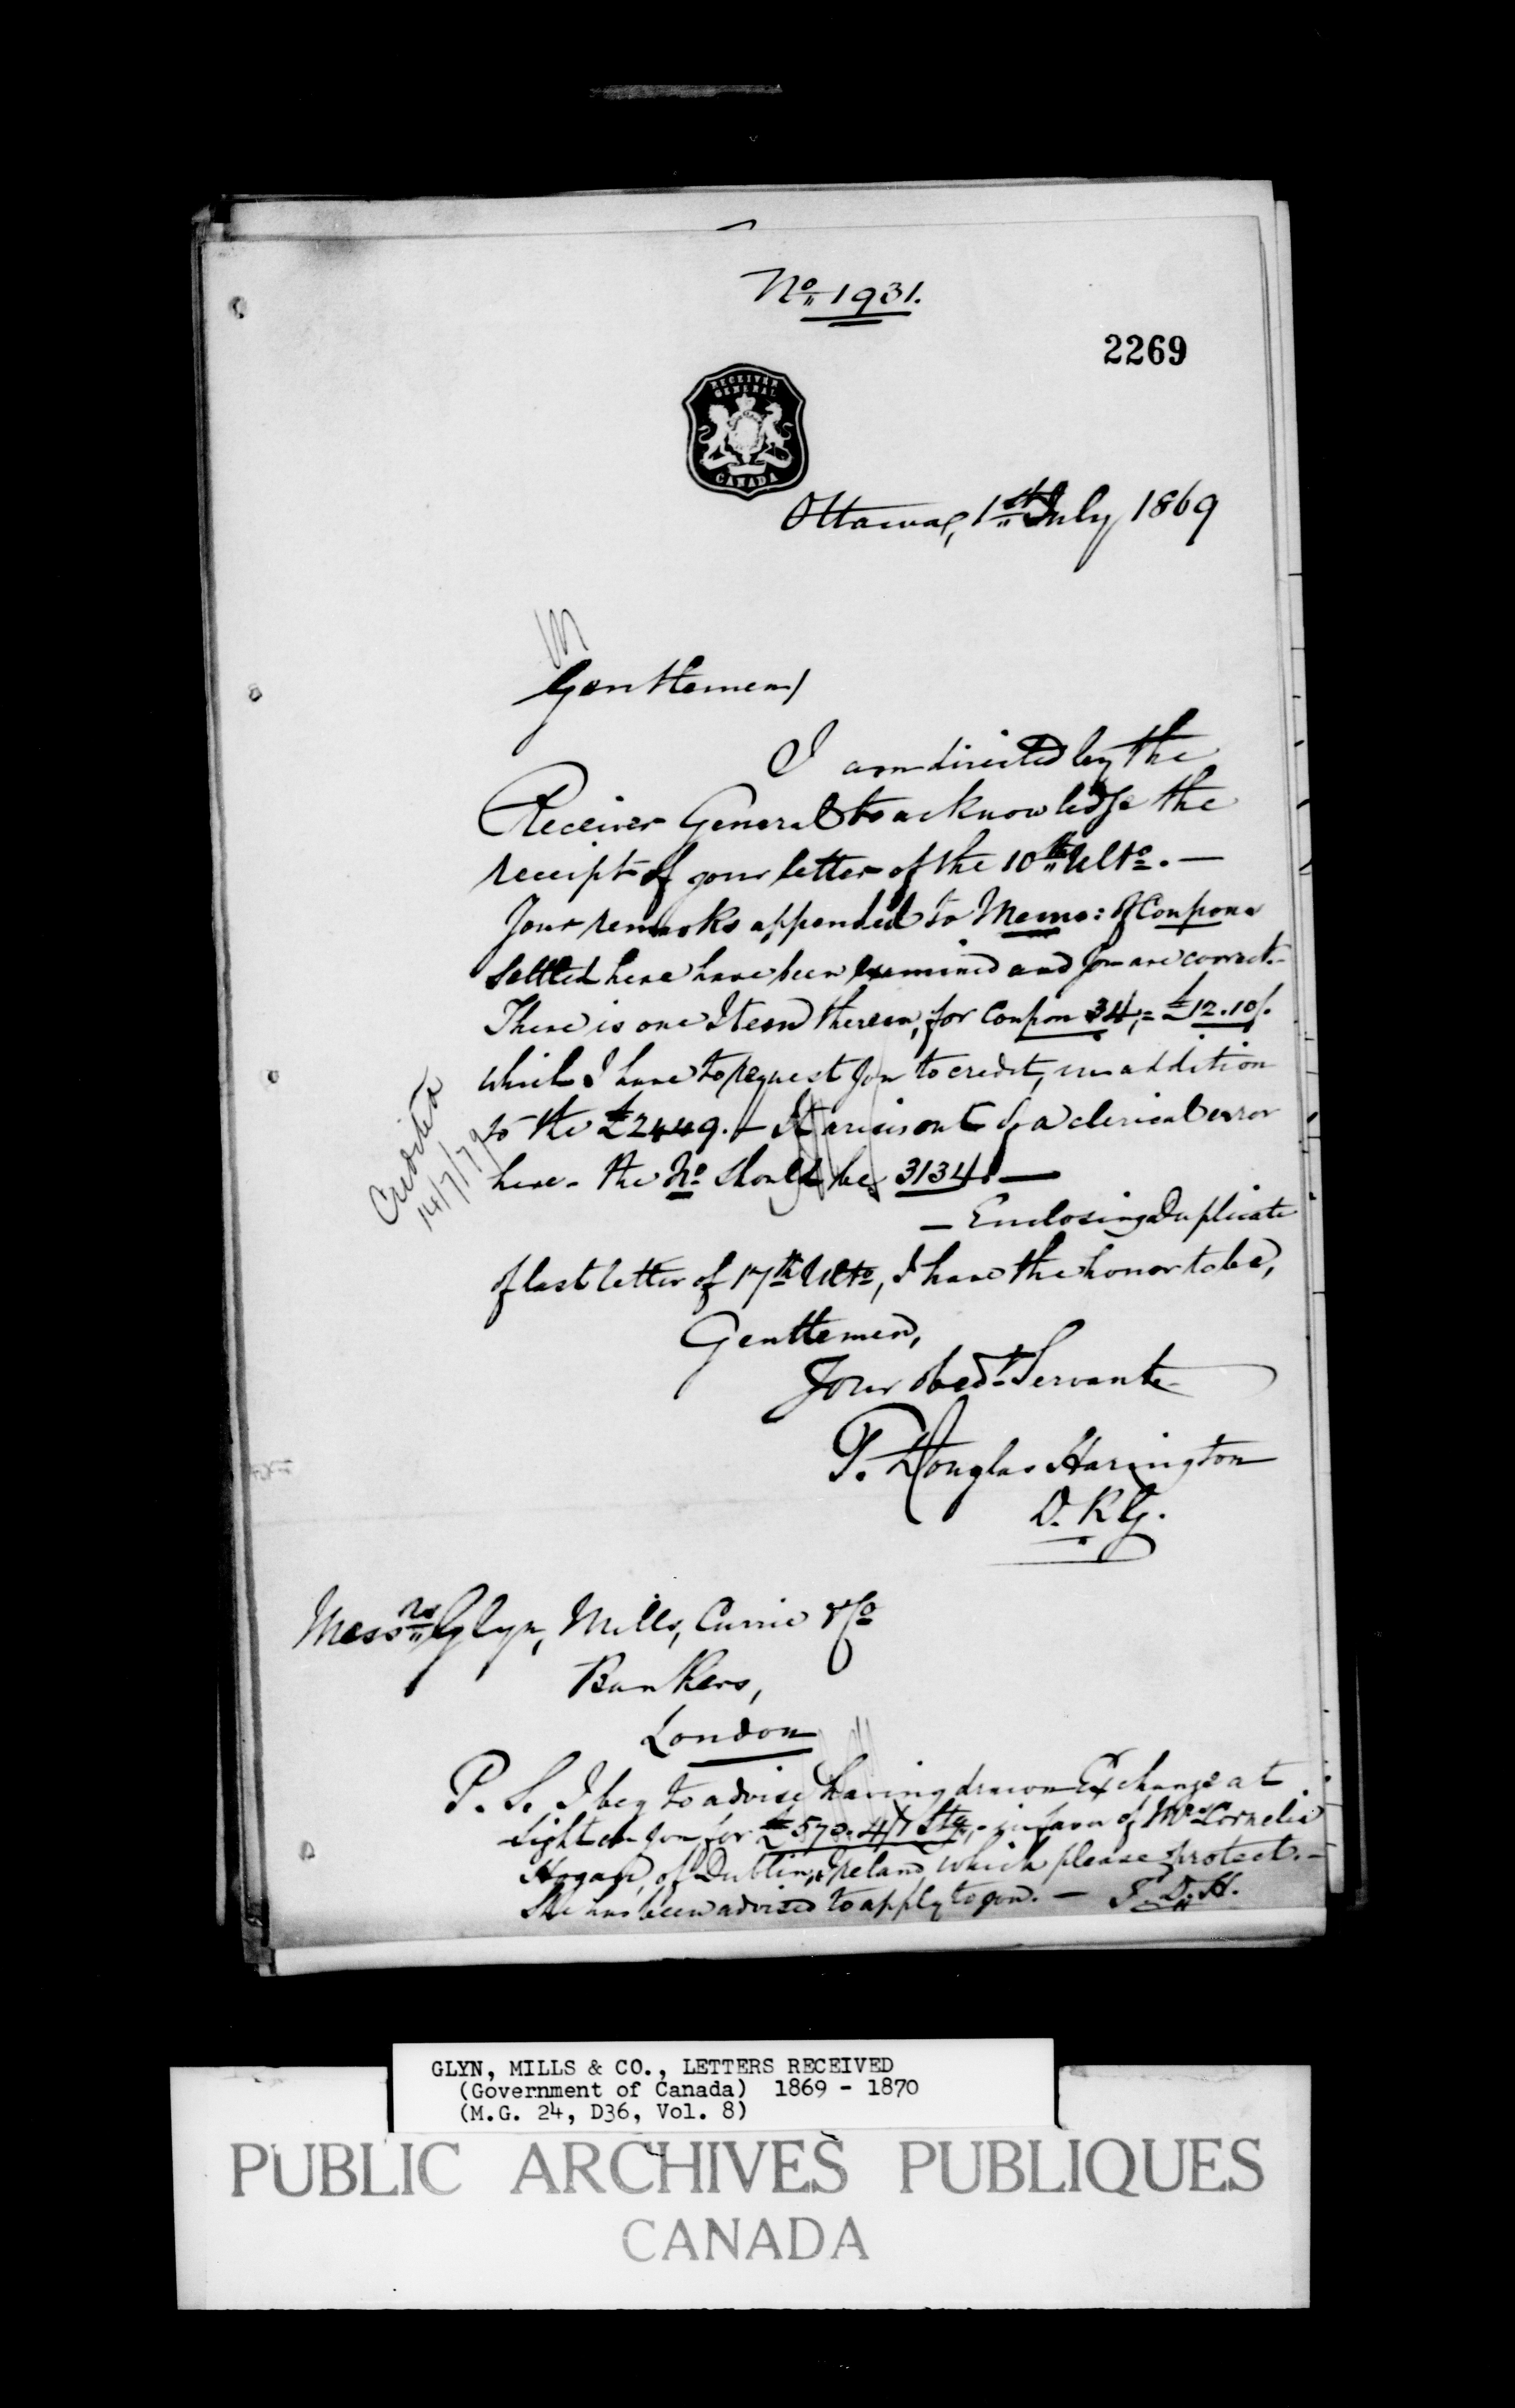 No 1931.
2269
RECEIVER
GENERAL
CANADA
Ottawa, 1st July 1869
Gentlemen,
I am directed by the
Receiver General to acknowledge the
receipt of your letter of the 10th Ulto. —
Your remarks appended to Memo: of Coupons
settled here have been examined and you are correct. -
There is one Item therein, for Coupon 34, = £12.10/.
which I have to request you to credit, in addition
to the £2449. - It arises out of a clerical error
here - the No should be 3134. —
Credited
14/7/79
— Enclosing Duplicate
of last letter of 17th Ulto, I have the honor to be,
Gentlemen,
Your obedt Servant
T. Douglas Harington
D. R. G.
Messrs Glyn, Mills, Currie & Co
Bankers,
London
P. S. I beg to advise having drawn Exchange at
sight on you for £570. 4/7 Stg, - in favor of Mrs Cornelia
Hogan, of Dublin, Ireland which please protect. -
She has been advised to apply to you. — T. D. H.
GLYN, MILLS & CO., LETTERS RECEIVED
(Government of Canada) 1869 - 1870
(M.G. 24, D36, Vol. 8)
PUBLIC ARCHIVES PUBLIQUES
CANADA